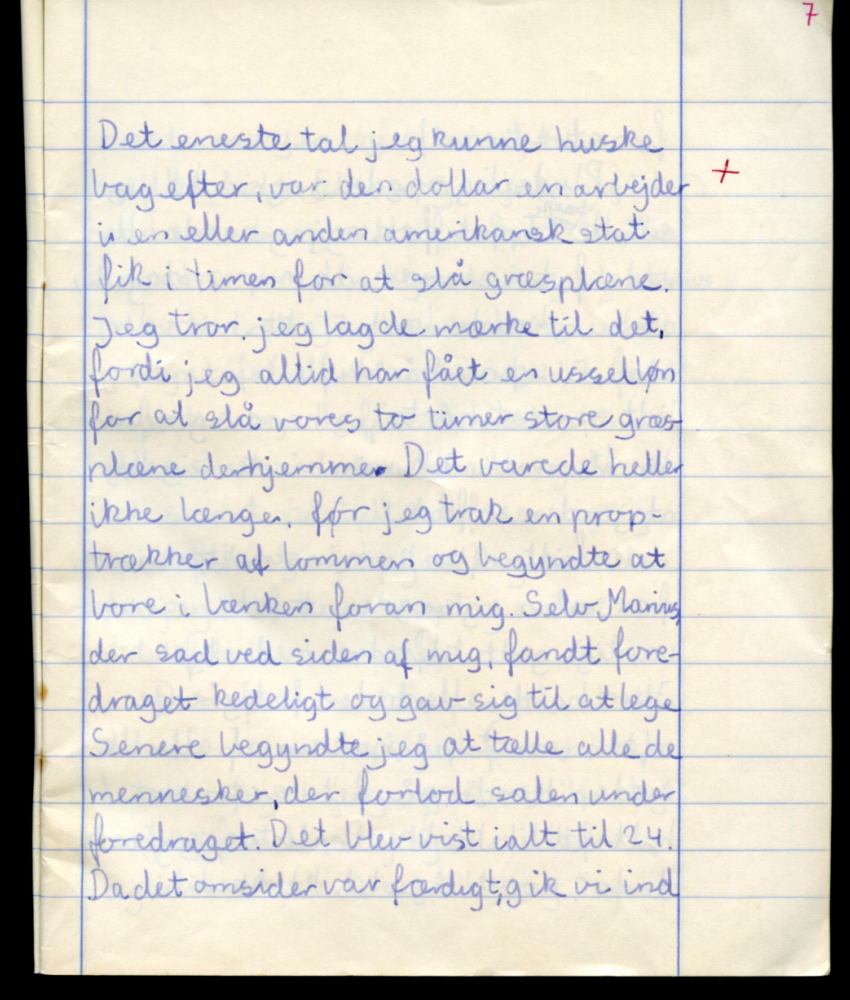 7
Det eneste tal jeg kunne huske
bagefter, var den dollar en arbejder
i en eller anden amerikansk stat
fik i timen for at slå græsplæne.
Jeg tror, jeg lagde mærke til det,
fordi jeg altid har fået en ussel løn
for at slå vores to timer store græs-
plæne derhjemme. Det varede heller
ikke længe, før jeg trak en prop-
trækker af lommen og begyndte at
bore i bænken foran mig. Selv Marius,
der sad ved siden af mig, fandt fore-
draget kedeligt og gav sig til at lege
Senere begyndte jeg at tælle alle de
mennesker, der forlod salen under
foredraget. Det blev vist ialt til 24.
Da det omsider var færdigt, gik vi ind